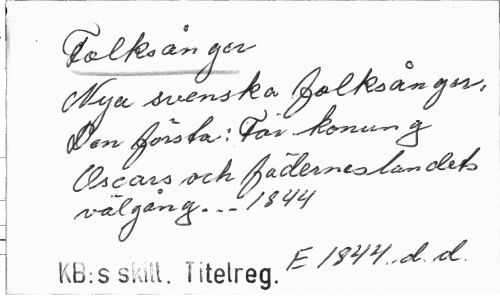 Folksånger
Nya svenska folksånger.
Den första: För konung
Oscars och fäderneslandets
välgång... 1844
E 1844. d. d.
KB:s skill. Titelreg.